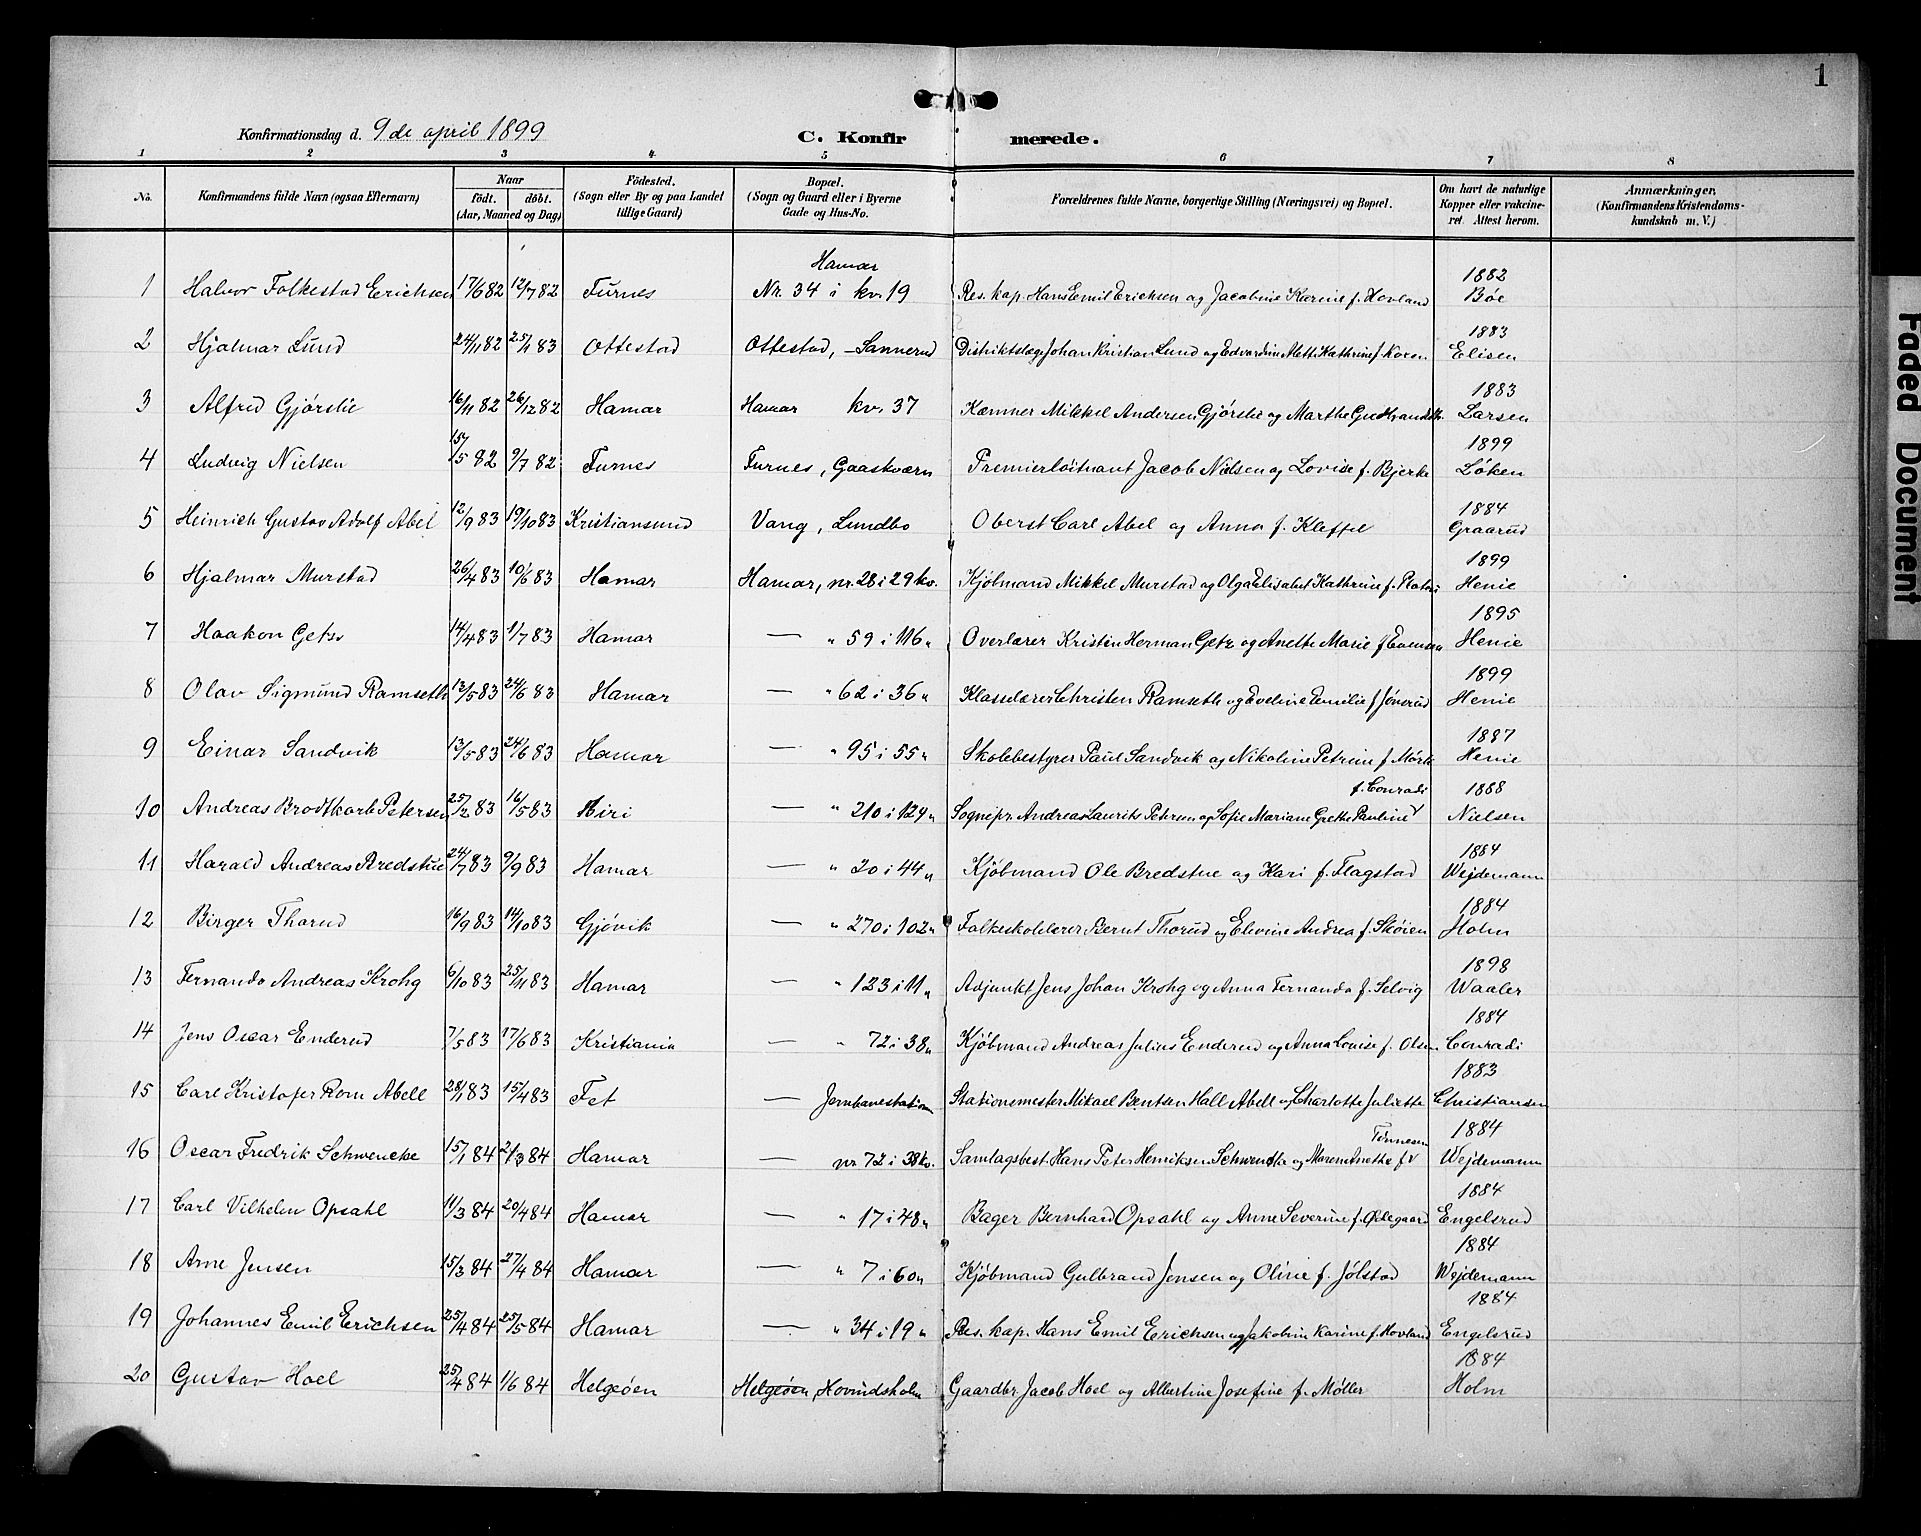 1
Konfirmationsdag d. 9de april 1899
C. Konfirmerede.
1 2 3 4 5 6 7 8
No. Konfirmandens fulde Navn (ogsaa Efternavn) Naar født. døbt. (Aar, Maaned og Dag) Fødested. (Sogn eller By og paa Landet tillige Gaard) Bopæl. (Sogn og Gaard eller i Byerne Gade og Hus-No. Forældrenes fulde Navne, borgerlige Stilling (Næringsvei) og Bopæl. Om havt de naturlige Kopper eller vakcineret. Attest herom. Anmærkninger. (Konfirmandens Kristendomskundskab m. V.)
1 Halvor Folkestad Erichsen 17/6 82 12/7 82 Furnes Hamar Nr. 34 i kv. 19 Res. kap. Hans Emil Erichsen og Jacobine Karine f. Hovland 1882 Bøe
2 Hjalmar Lund 24/11 82 25/1 83 Ottestad Ottestad, Sannerud Distriktslæge Johan Kristian Lund og Edvardine Mette Kathrine f. 1883 Elisen
3 Alfred Gjørslie 16/11 82 26/12 82 Hamar Hamar kv. 37 Kæmner Mikkel Andersen Gjørslie og Marthe 1883 Larsen
4 Ludvig Nielsen 15/5 82 9/7 82 Furnes Furnes, Gaaskværn Premierløitnant Jacob Nielsen og Lovise f. Bjerke 1899 Løken
5 Heinrich Gustav Adolf Abel 12/9 83 19/10 83 Kristiansund Vang, Lundbo Oberst Carl Abel og Anna f. Kleffel 1884 Graarud
6 Hjalmar Murstad 26/4 83 10/6 83 Hamar Hamar, nr. 28 i 29 kv. Kjøbmand Mikkel Murstad og Olga Elisabet Kathrine f. 1899 Henie
7 Haakon Getz 14/4 83 1/7 83 Hamar — " 59 i 116 " Overlærer Kristen Herman Getz og Anette Marie f. Evensen 1895 Henie
8 Olav Sigmund Ramseth 12/5 83 24/6 83 Hamar — " 62 i 36 " Klasselærer Christen Ramseth og Eveline Emilie f. Jønsrud 1899 Henie
9 Einar Sandvik 13/5 83 24/6 83 Hamar — " 95 i 55 " Skolebestyrer Paul Sandvik og Nikoline Petrine f. Mørk 1887 Henie
10 Andreas Brodtkorb Petersen 25/2 83 16/5 83 Biri — " 210 i 124 " Sognepr. Andreas Laurits Petersen og Sofie Mariane Grethe Pauline f. Conradi 1888 Nielsen
11 Harald Andreas Bredstue 24/7 83 9/9 83 Hamar — " 20 i 44 " Kjøbmand Ole Bredstue og Kari f. Flagstad 1884 Wejdemann
12 Birger Thorud 16/9 83 14/10 83 Gjøvik — " 270 i 102 " Folkeskolelærer Bernt Thorud og Elevine Andrea f. Skøien 1884 Holm
13 Fernando Andreas Krohg 6/10 83 25/11 83 Hamar " 123 i 11 " Adjunkt Jens Johan Krohg og Anna Fernanda f. Selvig 1898 Waaler
14 Jens Oscar Enderud 7/5 83 17/6 83 Kristiania — " 72 i 38 " Kjøbmand Andreas Julius Enderud og Anna Louise f. Olsen 1884 Conradi
15 Carl Kristofer Rom Abell 28/1 83 15/4 83 Fet — Jernbanestation Stationsmester Mikael Bentsen Hall Abell og Charlotte Juliette 1883 Christiansen
16 Oscar Fredrik Schwencke 15/1 84 2/3 84 Hamar — nr 72 i 38 kv. Samlagsbest. Hans Peter Henriksen Schwencke og Maren Anethe f. Tønnesen 1884 Wejdemann
17 Carl Vilhelm Opsahl 11/3 84 20/4 84 Hamar — " 17 i 48 " Bager Bernhard Opsahl og Anne Severine f. Ødegaard 1884 Engelsrud
18 Arne Jensen 15/3 84 27/4 84 Hamar — " 7 i 60 " Kjøbmand Gulbrand Jensen og Oline f. Jølstad 1884 Wejdemann
19 Johannes Emil Erichsen 25/4 84 25/5 84 Hamar — " 34 i 19 " Res. kap. Hans Emil Erichsen og Jakobine Karine f. Hovland 1884 Engelsrud
20 Gustav Hoel 25/4 84 1/6 84 Helgeøen Helgeøen, Hovindsholm Gaardbr. Jacob Hoel og Albertine Josefine f. Møller 1884 Holm
Faded Document